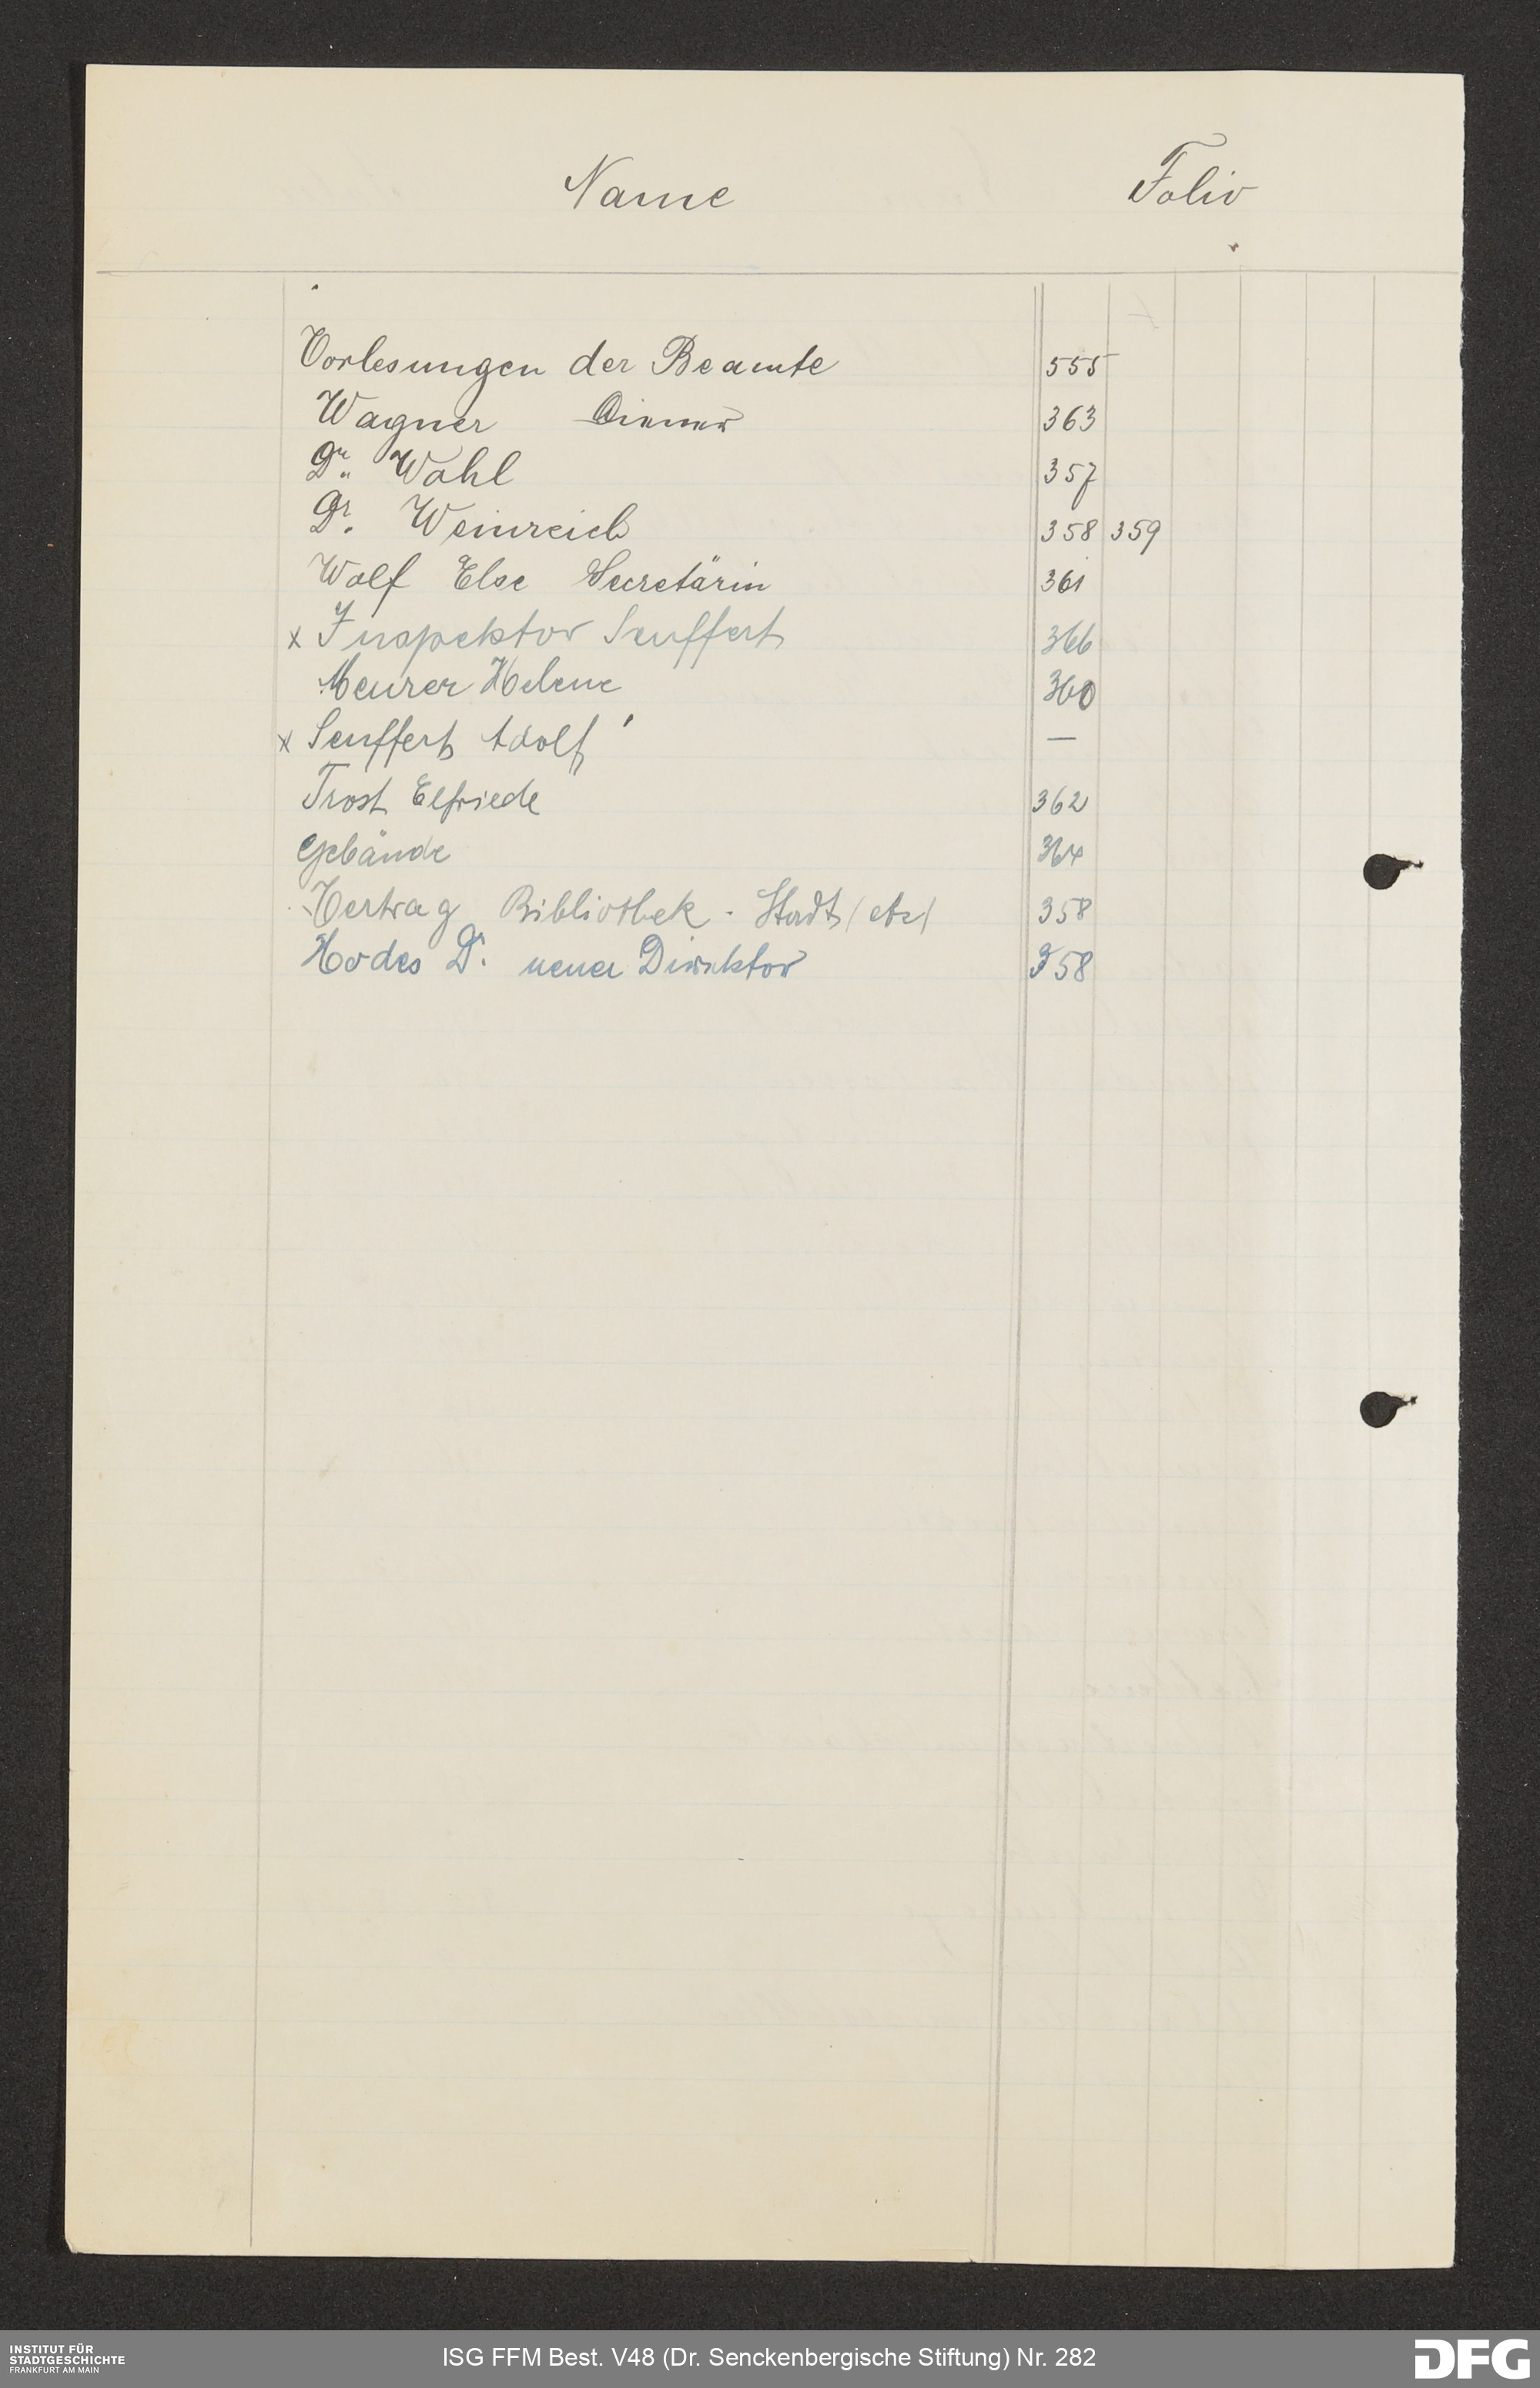 Name Folio
Vorlesungen der Beamte 555
Wagner Diener 363
Dr. Wahl 357
Dr. Weinreich 358 359
Wolf Else Secretärin 361
x Inspektor Seuffert 366
Meurer Helene 360
x Seuffert Adolf —
Trost Elfriede 362
Gebäude 364
Vertrag Bibliothek - Stadt (etc) 358
Hodes Dr. neuer Direktor 358
INSTITUT FÜR
STADTGESCHICHTE
FRANKFURT AM MAIN
ISG FFM Best. V48 (Dr. Senckenbergische Stiftung) Nr. 282
DFG